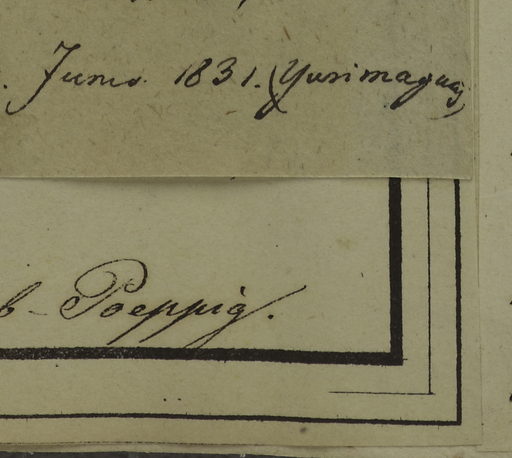 . Junio. 1831. (Yurimaguas)
b- Poeppig.